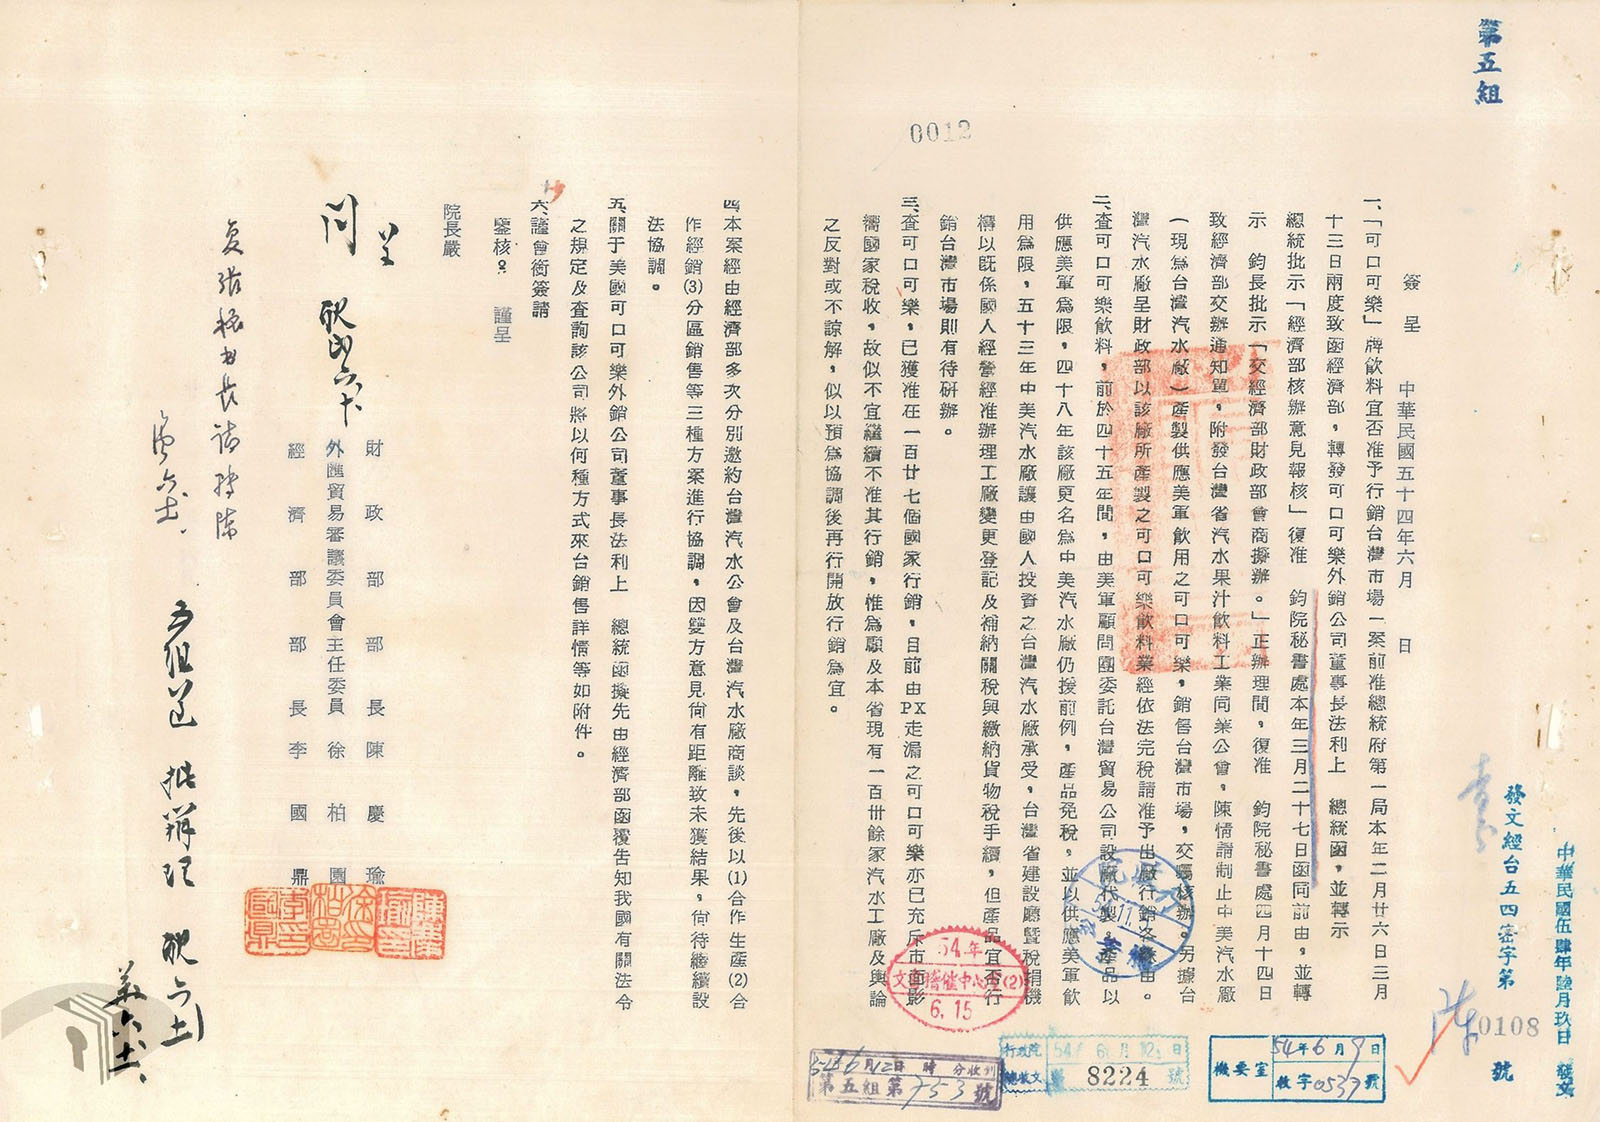 第五組
0012
簽呈
中華民國五十四年六月 日
一、「可口可樂」牌飲料宜否准予行銷台灣市場一案前准總統府第一局本年二月廿六日三月
十三日兩度致函經濟部，轉發可口可樂外銷公司董事長法利上 總統函，並轉示
總統批示「經濟部核辦意見報核」復准 鈞院秘書處本年三月二十七日函同前由，並轉
示 鈞長批示「交經濟部財政部會商擬辦。」正辦理間，復准 鈞院秘書處四月十四日
致經濟部交辦通知單，附發台灣省汽水果汁飲料工業同業公會，陳情請制止中美汽水廠
（現為台灣汽水廠）產製供應美軍飲用之可口可樂，銷售台灣市場，交囑核辦。另據台
灣汽水廠呈財政部以該廠所產製之可口可樂飲料業經依法完稅請准予出廠行銷各緣由。
二、查可口可樂飲料，前於四十五年間，由美軍顧問團委託台灣貿易公司設廠代製，產品以
供應美軍為限，四十八年該廠更名為中美汽水廠仍援前例，產品免稅，並以供應美軍飲
用為限，五十三年中美汽水廠讓由國人投資之台灣汽水廠承受，台灣省建設廳暨稅捐機
構以既係國人經營經准辦理工廠變更登記及補納關稅與繳納貨物稅手續，但產品宜否行
銷台灣市場則有待研辦。
三、查可口可樂，已獲准在一百廿七個國家行銷，目前由PX走漏之可口可樂亦已充斥市面影
嚮國家稅收，故似不宜繼續不准其行銷，惟為顧及本省現有一百卅餘家汽水工廠及輿論
之反對或不諒解，似以預為協調後再行開放行銷為宜。
四、本案經由經濟部多次分別邀約台灣汽水公會及台灣汽水廠商談，先後以(1)合作生產(2)合
作經銷(3)分區銷售等三種方案進行協調，因雙方意見尚有距離致未獲結果，尚待繼續設
法協調。
五、關于美國可口可樂外銷公司董事長法利上 總統函擬先由經濟部函覆告知我國有關法令
之規定及查詢該公司將以何種方式來台銷售詳情等如附件。
六、謹會銜簽請
鑒核。 謹呈
院長嚴
財政部長陳慶瑜
外匯貿易審議委員會主任委員徐柏園
經濟部長李國鼎
呈
閱
五組送
中華民國伍肆年陸月玖日 發文
發文經台五四密字第 0108 號
機要室
54年6月9日
收字0539號
行政院
總收文
54年6月12日
8224號
6月12日 時 分收到
第五組第753號
54.年
6.15